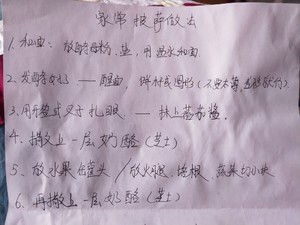 家常披萨做法
1、和面：放酵母粉、盐，用温水和面
2、发酵好 —— 醒面，擀成圆形
3、用牙签或叉子扎眼 —— 抹上番茄酱。
4、撒上一层奶酪（芝士）
5、放水果、罐头／放火腿、培根、蔬菜切小块
6、再撒上一层奶酪（芝士）